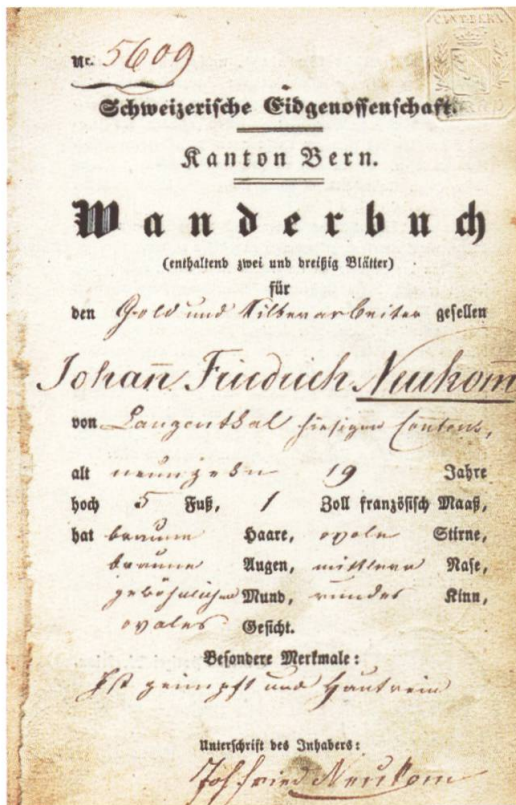 CANT: BERN
Nr. 5609
Schweizerische Eidgenossenschaft.
Kanton Bern.
Wanderbuch
(enthaltend zwei und dreißig Blätter)
für
den Gold und Silberarbeiter gesellen
Johañ Friedrich Neukom̃
von Langenthal hiesigen Cantons,
alt neunzehn 19 Jahre
hoch 5 Fuß, 1 Zoll französisch Maaß,
hat braune Haare, ovale Stirne,
braune Augen, mittlere Nase,
gewöhnlichen Mund, rundes Kinn,
ovales Gesicht.
Besondere Merkmale:
Ist geimpft und Hautrein
Unterschrift des Inhabers:
Joh Fried Neukom